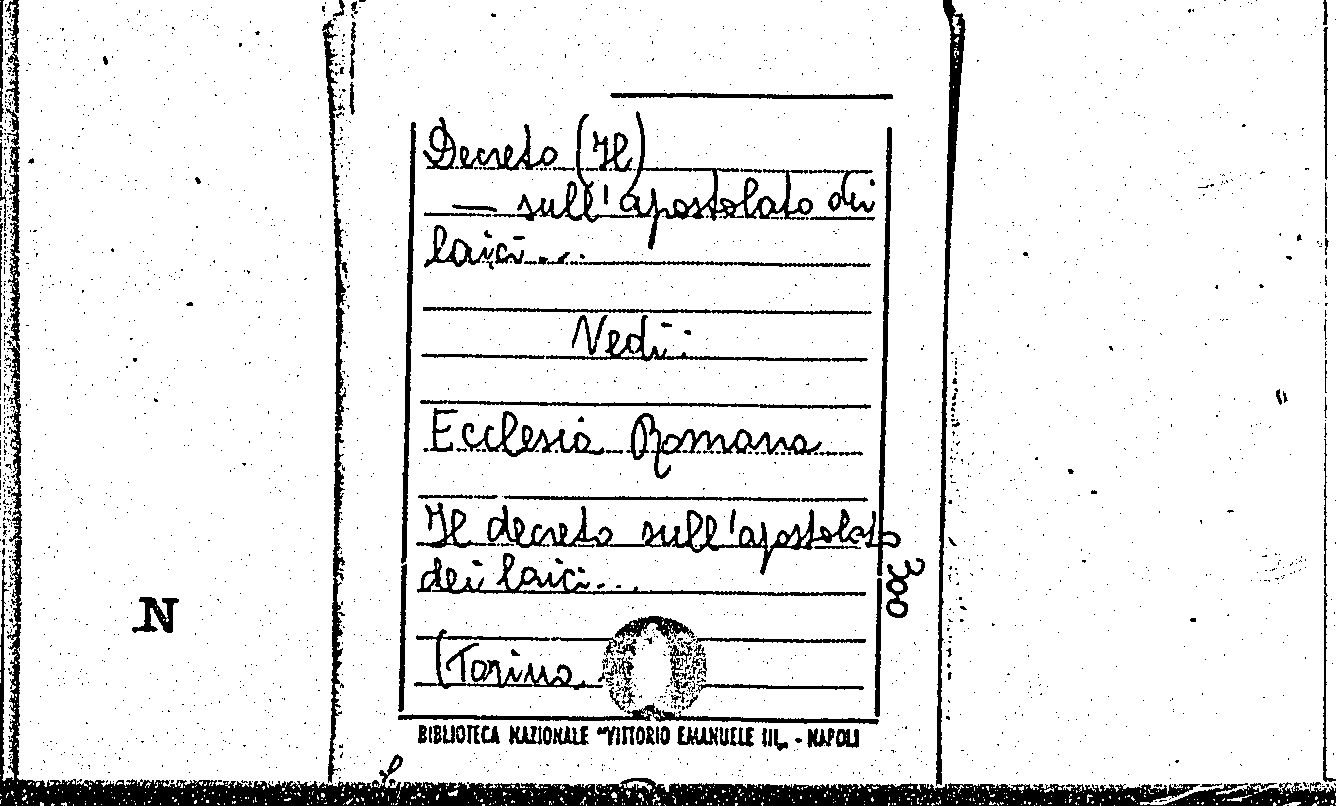 Decreto (Il)
— sull'apostolato dei
laici...
Vedi:
Ecclesia Romana
Il decreto sull'apostolato
dei laici...
300
N
(Torino
BIBLIOTECA NAZIONALE "VITTORIO EMANUELE III„ - NAPOLI